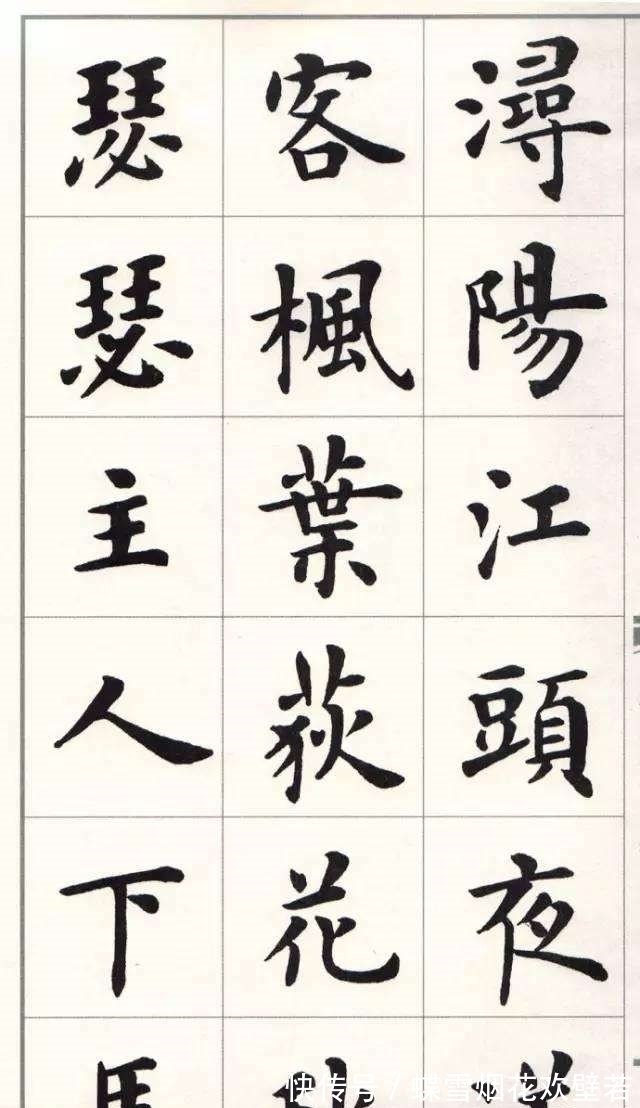 潯陽江頭夜
客楓葉荻花
瑟瑟主人下
快传号／蝶雪烟花欢壁若